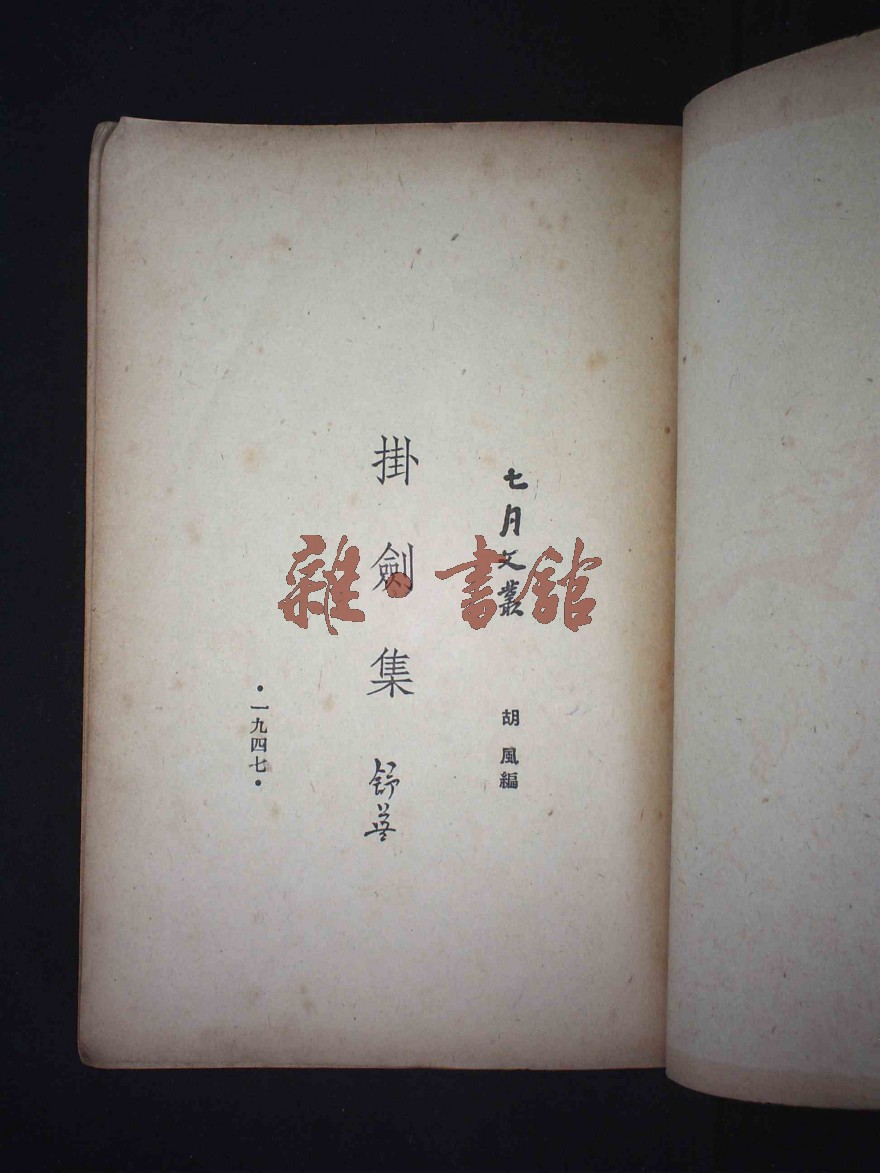 七月文叢
胡風編
掛劍集
舒蕪
·一九四七·
雜·書館